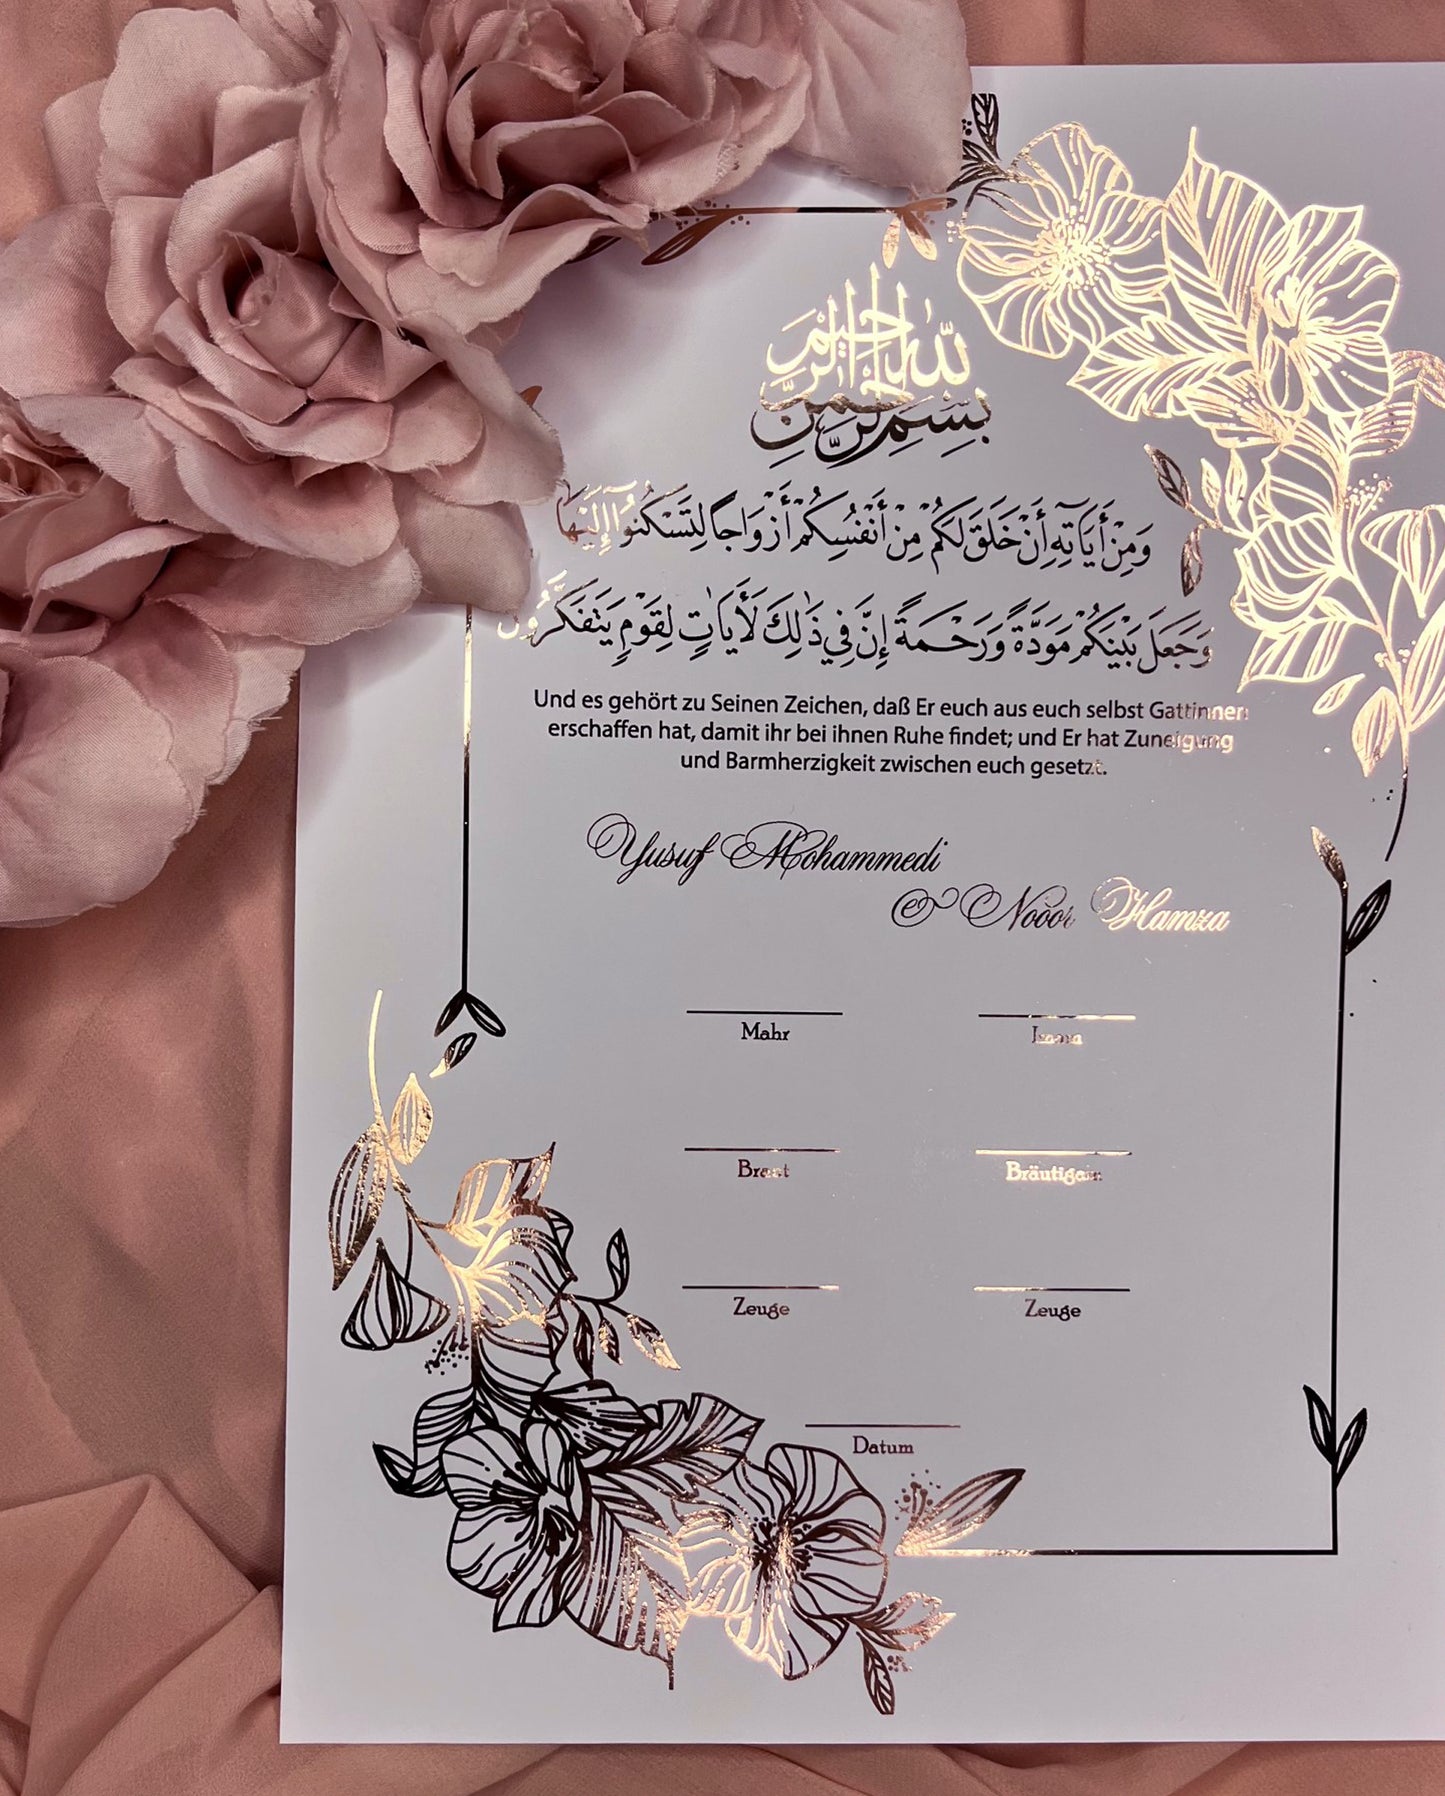 بِسْمِ اللهِ الرَّحْمٰنِ الرَّحِيْمِ
وَمِنْ أَيَاتِهِ أَنْ خَلَقَ لَكُمْ مِنْ أَنْفُسِكُمْ أَزْوَاجًا لِتَسْكُنُوٓا إِلَيْهَا
وَجَعَلَ بَيْنَكُمْ مَوَدَّةً وَرَحْمَةً إِنَّ فِي ذٰلِكَ لَأَيَاتٍ لِقَوْمٍ يَتَفَكَّرُونَ
Und es gehört zu Seinen Zeichen, daß Er euch aus euch selbst Gattinnen
erschaffen hat, damit ihr bei ihnen Ruhe findet; und Er hat Zuneigung
und Barmherzigkeit zwischen euch gesetzt.
Yusuf Mohammedi
& Nooor Hamza
Mahr
Imam
Braut
Bräutigam
Zeuge
Zeuge
Datum